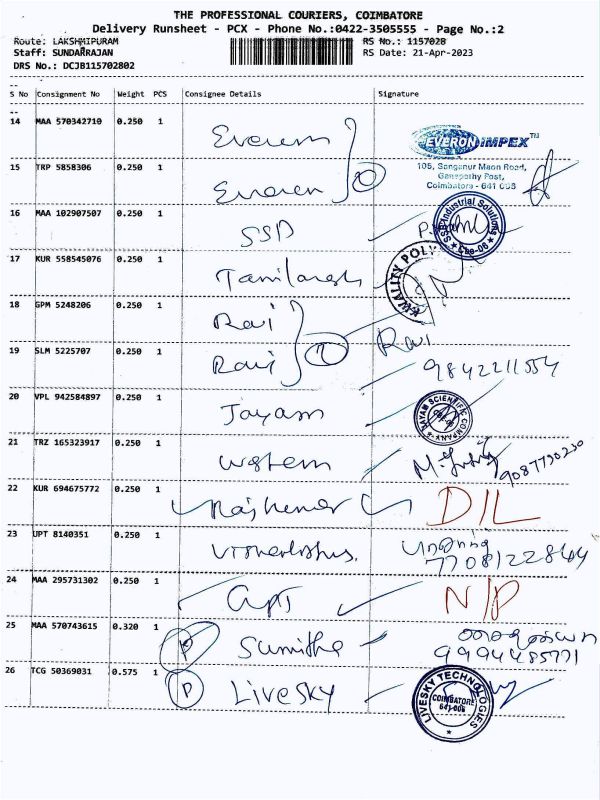 THE PROFESSIONAL COURIERS, COIMBATORE
Delivery Runsheet - PCX - Phone No.:0422-3505555 - Page No.:2
Route: LAKSHMIPURAM RS No.: 1157028
Staff: SUNDARRAJAN RS Date: 21-Apr-2023
DRS No.: DCJB115702802
S No Consignment No Weight PCS Consignee Details Signature
14 MAA 570342710 0.250 1 Everon
EVERON IMPEX TM
15 TRP 5858306 0.250 1 Everon
105, Sanganur Main Road,
Ganapathy Post,
Coimbatore - 641 006
16 MAA 102907507 0.250 1 SSD
SSP Industrial Solutions Cbe-06
17 KUR 558545076 0.250 1
KWALITY POLY
18 GPM 5248206 0.250 1 Ravi
Ravi
19 SLM 5225707 0.250 1 Ravi
9842211554
20 VPL 942584897 0.250 1 Jayam
SCIENTIFIC COMPANY
21 TRZ 165323917 0.250 1
9087790230
22 KUR 694675772 0.250 1 D/L
23 UPT 8140351 0.250 1
7708122864
24 MAA 295731302 0.250 1 N/D
25 MAA 570743615 0.320 1 P Sumitha
9994485771
26 TCG 50369031 0.575 1 P Livesky
LIVESKY TECHNOLOGIES COIMBATORE 641-006